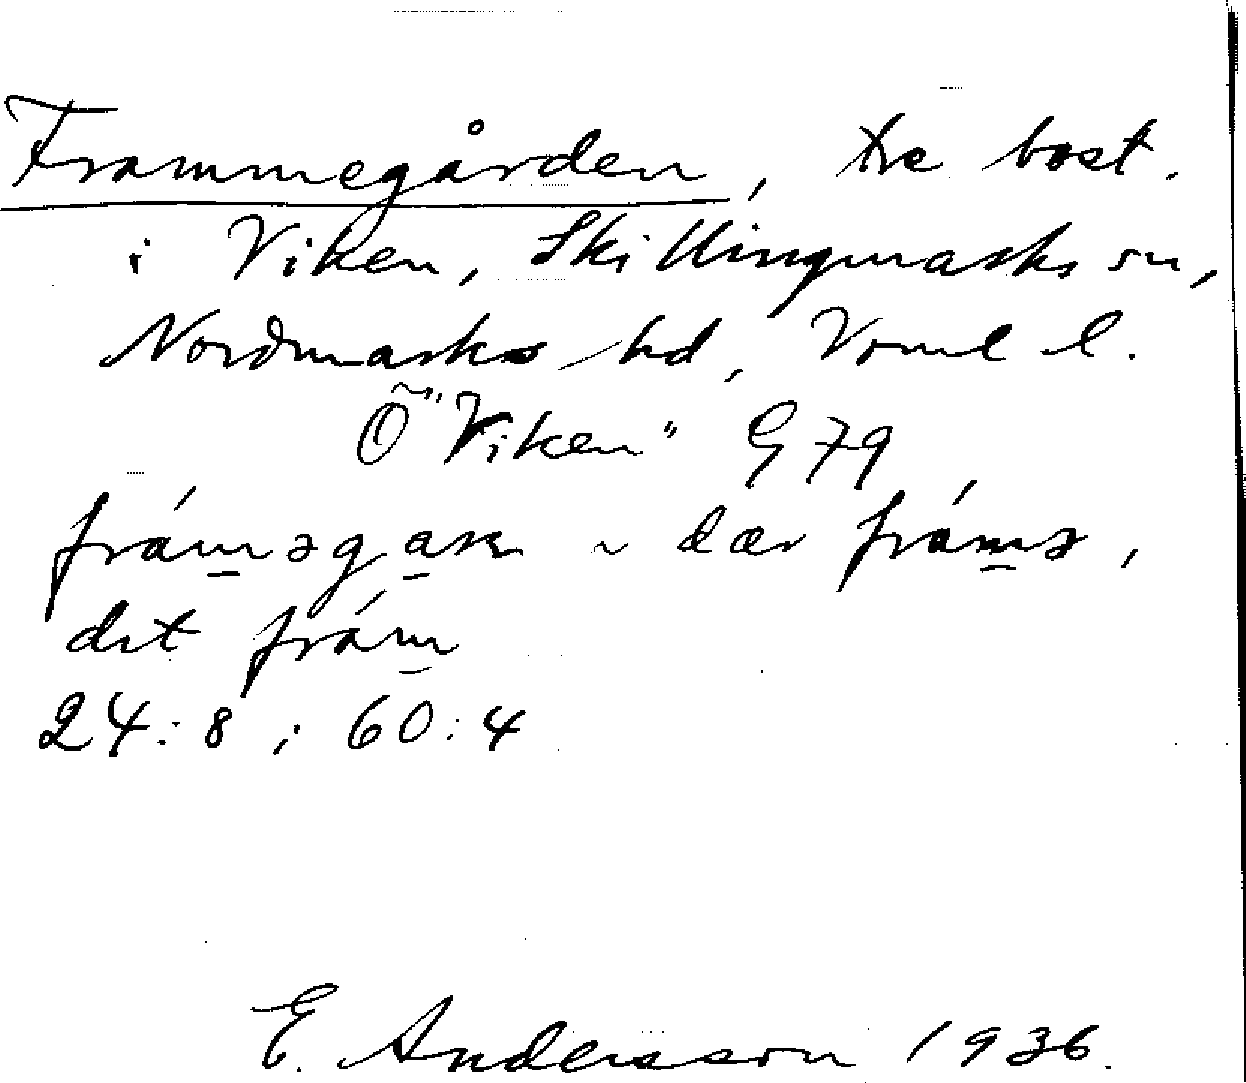 Frammegården, tre bost.
i Viken, Skillingmarks sn,
Nordmarks hd, Vrml l.
Õ "Viken" G 79
frám̲əga̲ṣn ~ dær frám̲ə,
det frám̲
24:8; 60:4
E. Andersson 1936.